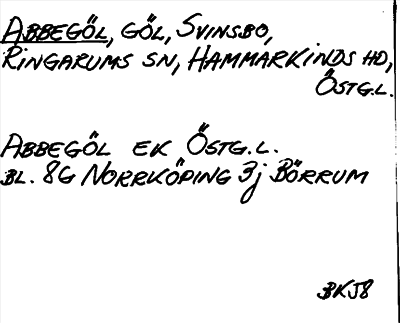 ABBEGÖL, GÖL, SVINSBO,
RINGARUMS SN, HAMMARKINDS HD,
ÖSTG.L.
ABBEGÖL EK ÖSTG.L.
BL. 8G NORRKÖPING 3j BÖRRUM
BKJ8